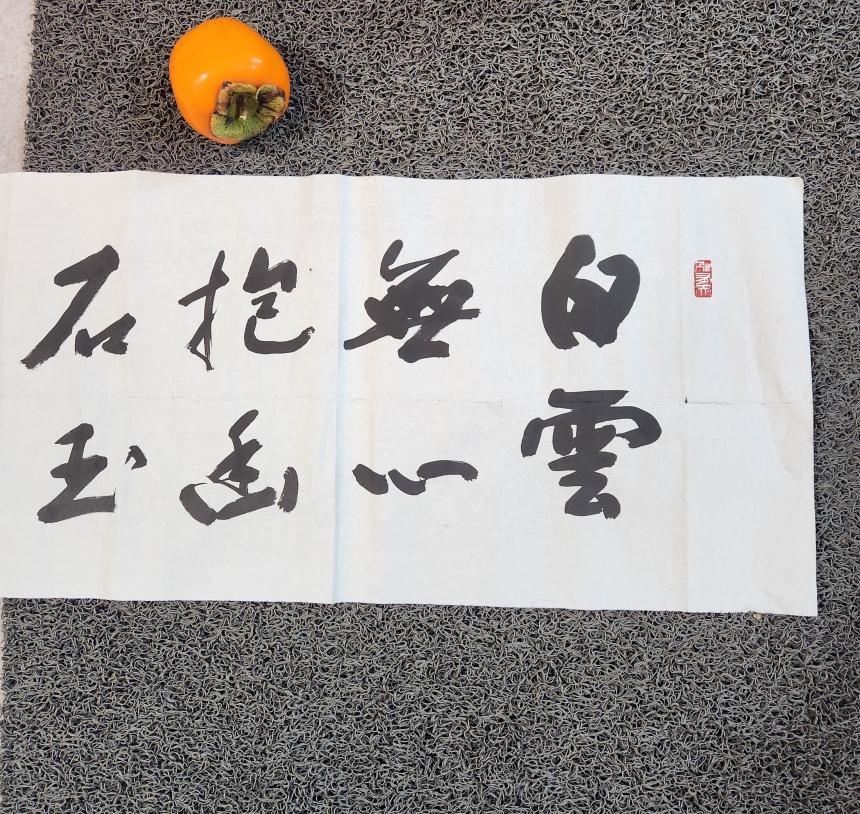 白雲
無心
抱幽
石玉